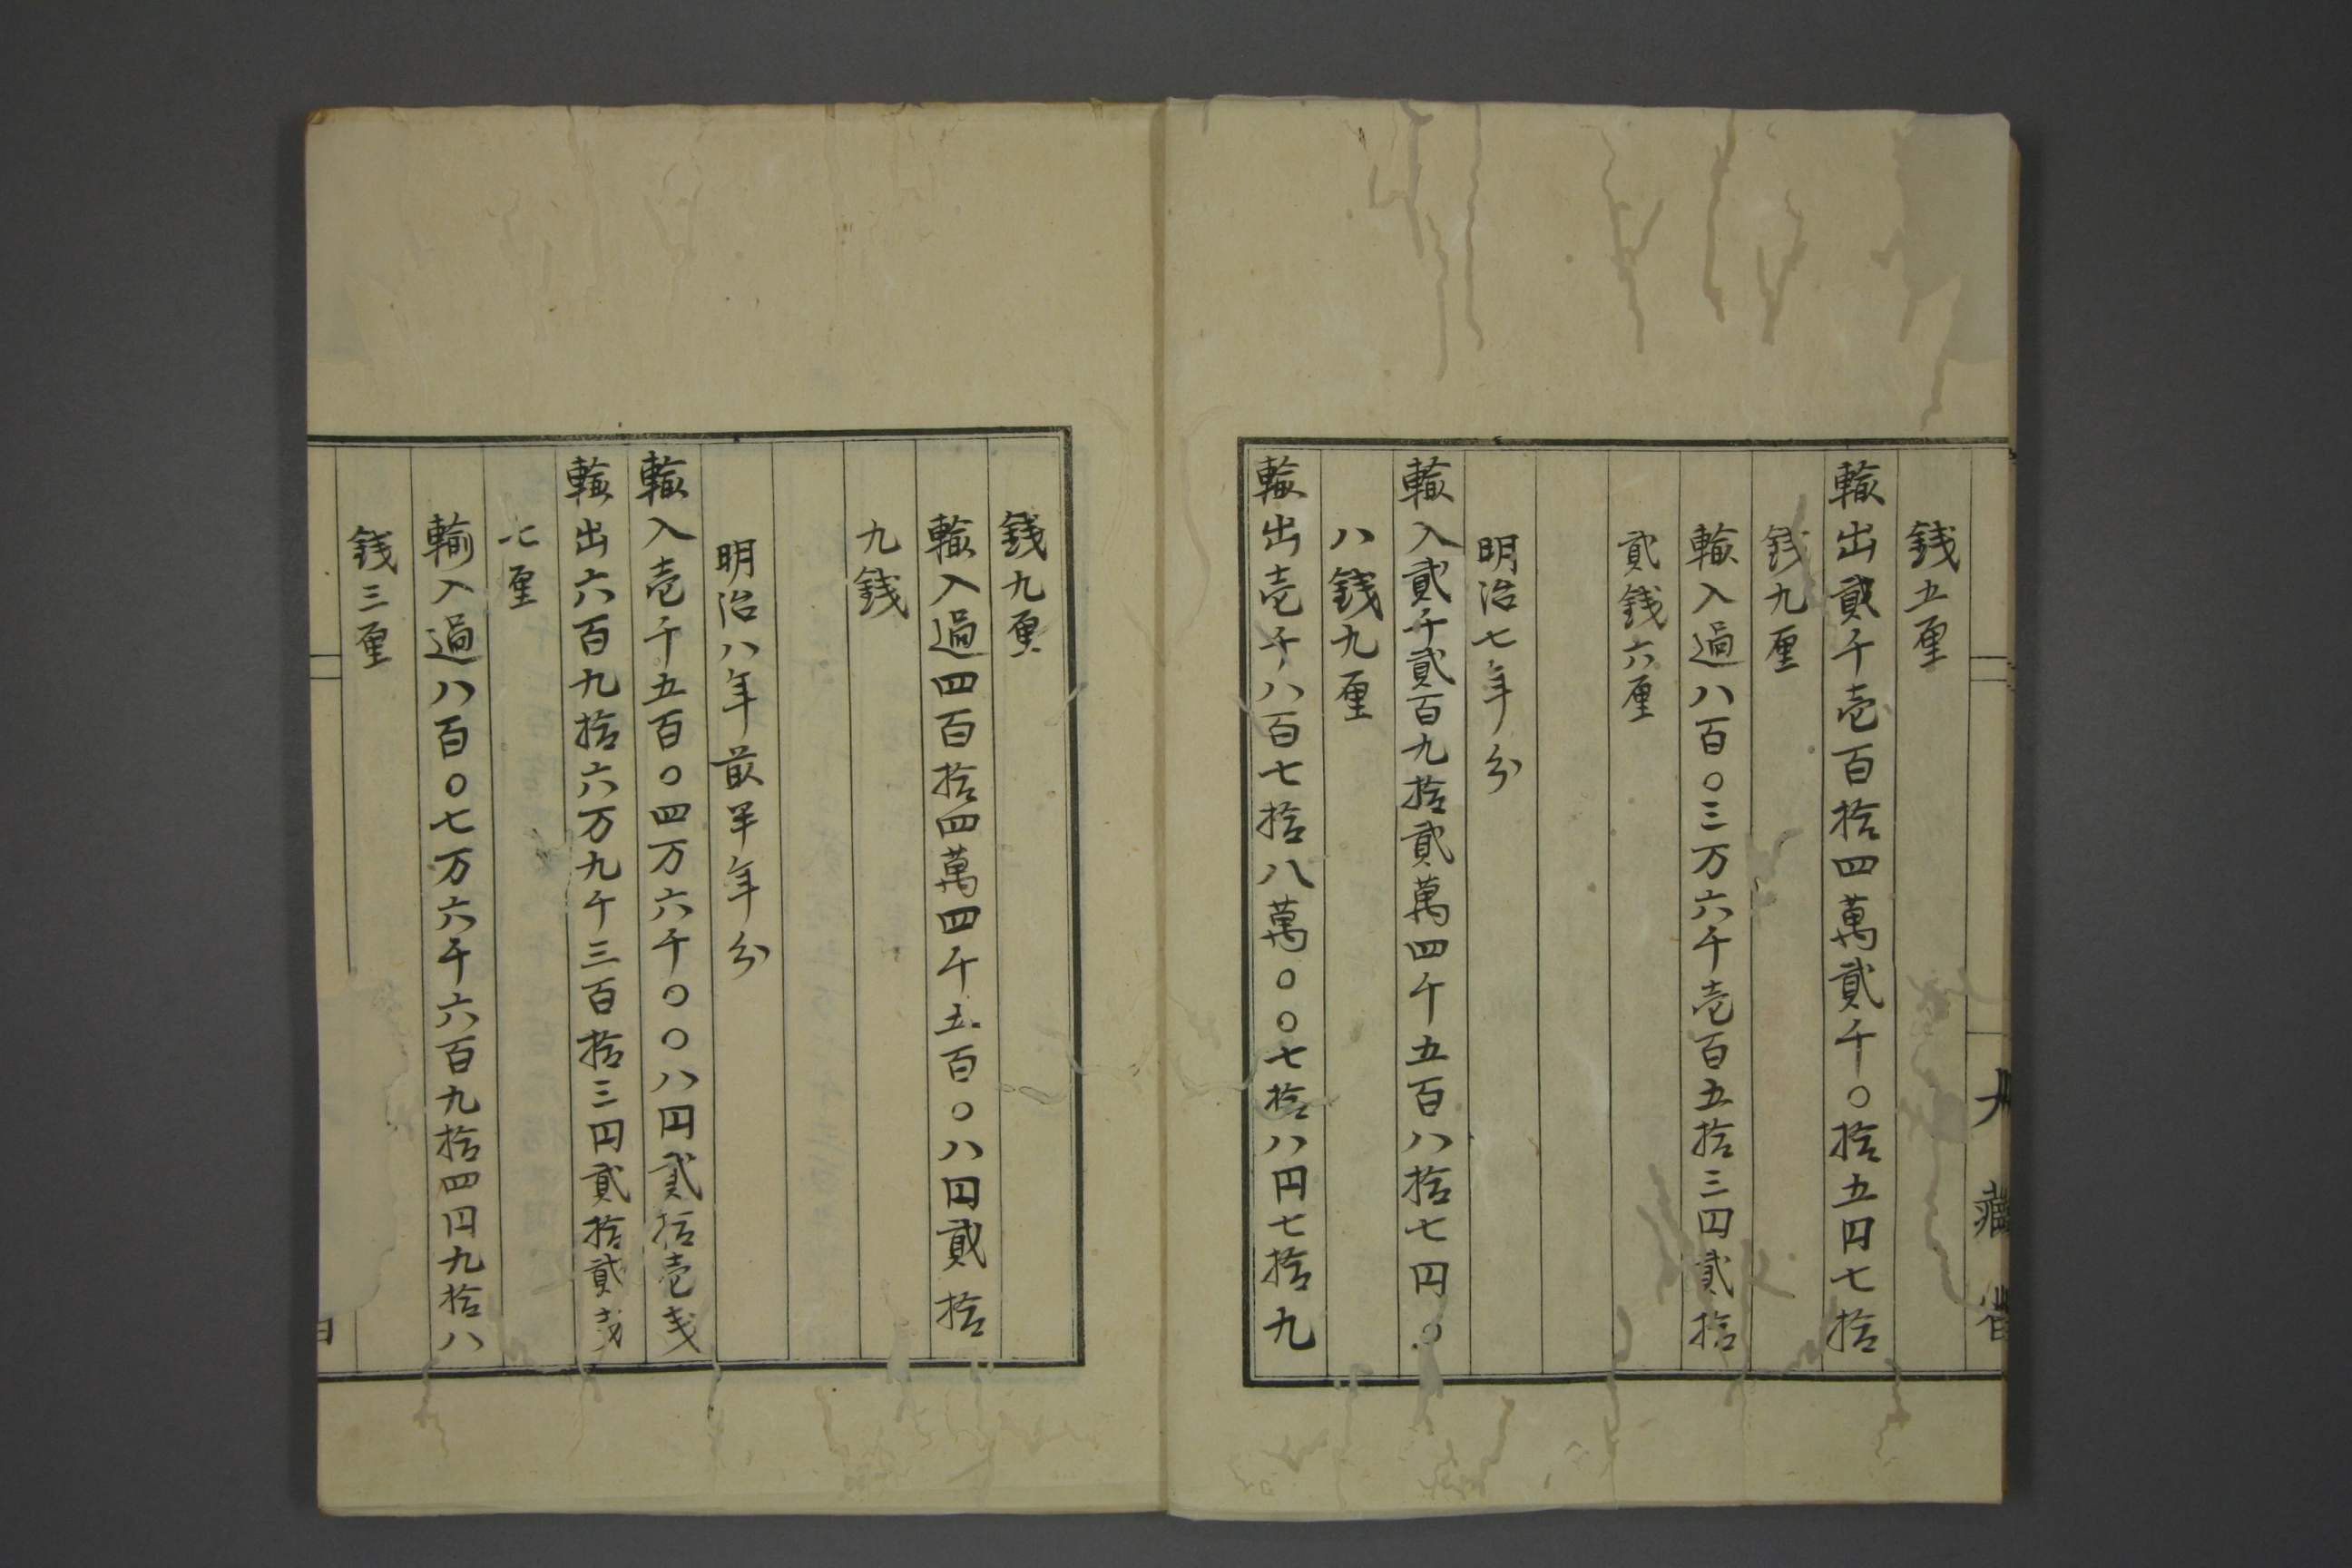 大藏省
錢五厘
輸出貳千壱百拾四萬貳千〇拾五円七拾
錢九厘
輸入過八百〇三万六千壱百五拾三円貳拾
貳錢六厘
明治七年分
輸入貳千貳百九拾貳萬四千五百八拾七円〇
八錢九厘
輸出壱千八百七拾八萬〇〇七拾八円七拾九
錢九厘
輸入過四百拾四萬四千五百〇八円貳拾
九錢
明治八年前半年分
輸入壱千五百〇四万六千〇〇八円貳拾壱戋
輸出六百九拾六万九千三百拾三円貳拾貳戋
七厘
輸入過八百〇七万六千六百九拾四円九拾八
錢三厘